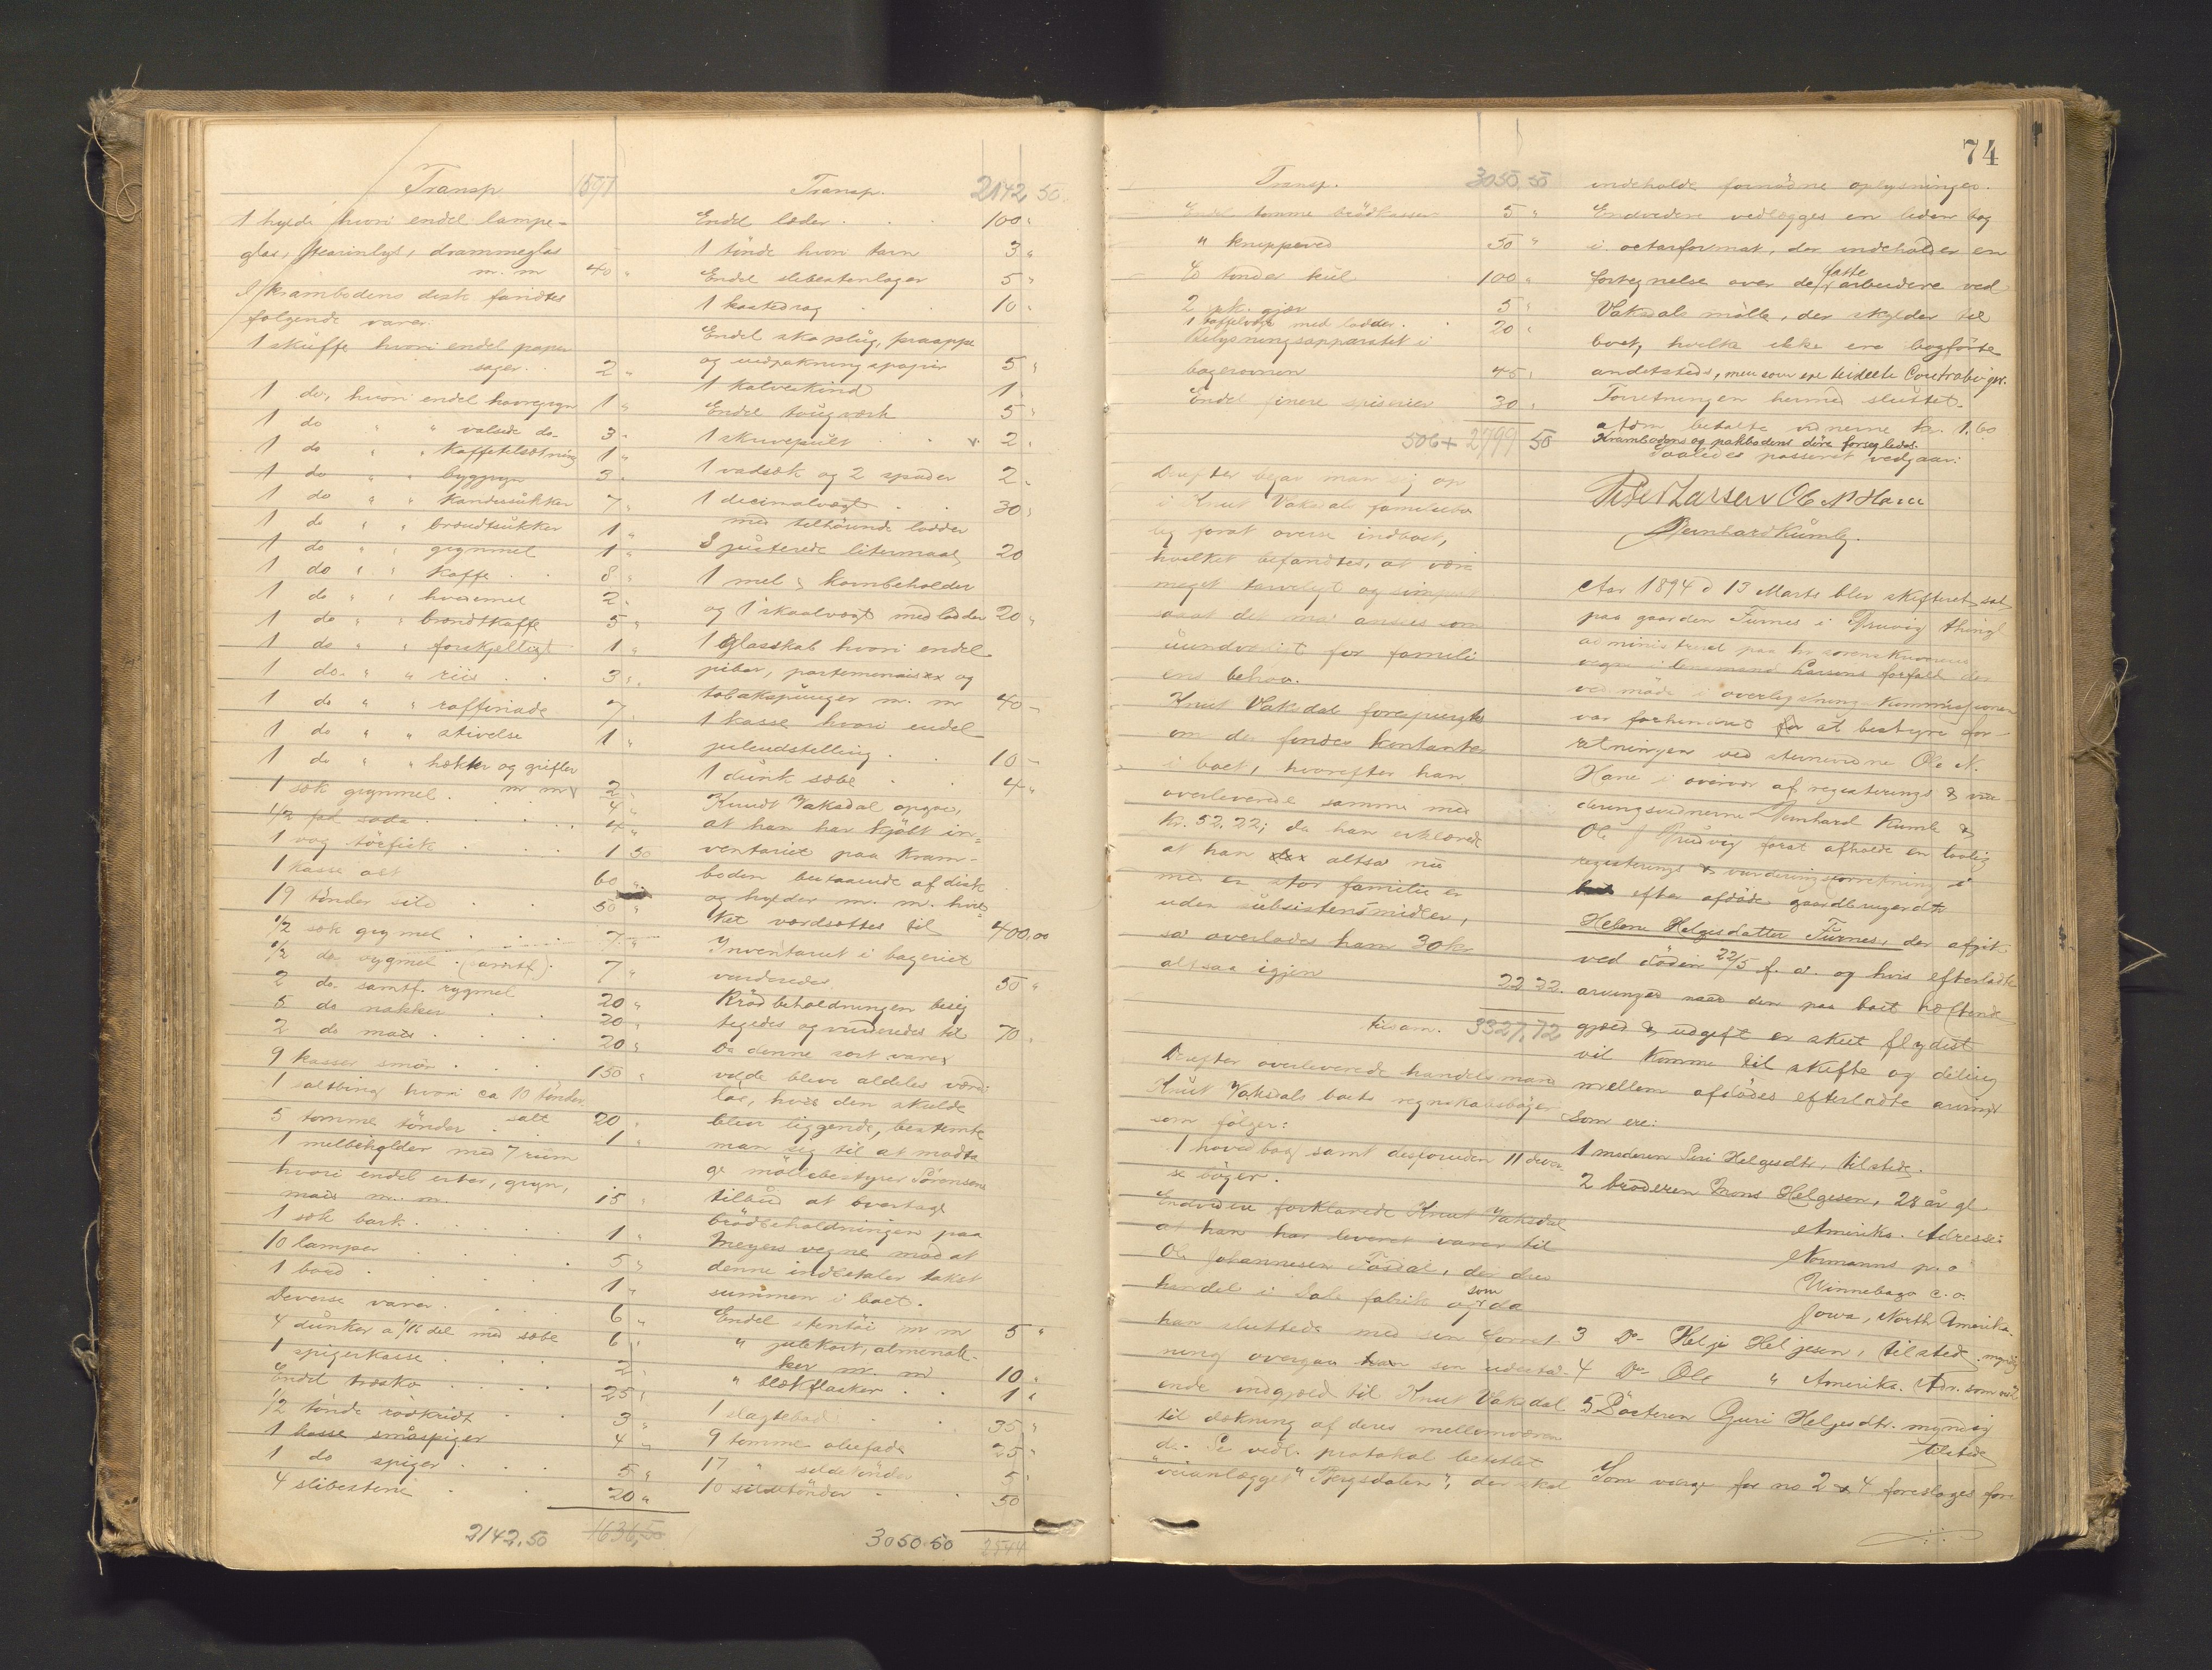 Transp 1597
1 hylde hvori endel lampe-
glas, stearinlys, drammeglas
m. m 40 "
I krambodens disk fandtes
følgende varer:
1 skuffe hvori endel papir
sager. 2 "
1 do, hvori endel havregryn 1 "
1 do " " valsede do. 3 "
1 do " " kaffetilsætning 1 "
1 do " " byggryn 3 "
1 do " " kandissukker 7 "
1 do " " brændtsukker 1 "
1 do " " grynmel 1 "
1 do " " kaffe . . 8 "
1 do " " hvedemel 2 "
1 do " " brændtkaffe 5 "
1 do " " forskjelligt 1 "
1 do. " " riis . . 3 "
1 do " " raffinade 7 "
1 do " " stivelse 1 "
1 do " " hækter og grifler
m m 2 "
1 sæk grynmel . 4 "
1/2 fad soda . . . . 4 "
1 vog törfisk . . . 1 50
1 kasse ost 60 "
19 tönder sild . . 50 "
1/2 sæk grynmel . . . 7 "
1/2 do rygmel . 7 "
2 do samtf. rygmel 20 "
5 do nakker . . 20 "
2 do mais . . . . 20 "
9 kasser smör . . . 150 "
1 saltbing hvori ca 10 tönder
salt 20 "
5 tomme tönder . 1 "
1 melbeholder med 7 rum
hvori endel erter, gryn,
mais m. m. 15 "
1 sæk bark . . . . 1 "
10 lamper . . . . 5 "
1 bord . . . . 1 "
Diverse varer . . . . 6 "
4 dunker a 1/16 del med sæbe 6 "
1 spigerkasse . . . . 2 "
Endel træsko . . . . 25 "
1/2 tönde rödkridt . . 3 "
1 kasse småspiger 4 "
1 do spiger . . . 5 "
4 slibestene . . 20 "
2142.50 1636,50
Transp. 2142 50.
Endel læder . . . 100 "
1 tönde hvori tarn 3 "
Endel slibestenlager 5 "
1 kastedrag . . 10 "
Endel skoplug, praappe
og indpakningspapir 5 "
1 kalveskind 1 "
Endel tougværk 5 "
1 skrivepult . . 2 "
1 vadsæk og 2 spader 2 "
1 decimalvægt . . 30 "
med tilhörende lodder
8 justerede litermaal 20
1 mel & kornbeholder
og 1 skaalvægt med lodder 20 "
1 Glasskab hvori endel
piber, portemonais og
tobakspunger m. m 40 –
1 kasse hvori endel
juleudstelling . . 10 –
1 dunk sæbe . . 4 "
Knudt Vaksdal opgav,
at han har kjöbt in-
ventariet paa kram-
boden bestaaende af disk
og hylder m. m. hvil-
ket værdsættes til 400,00
Inventariet i bageriet
vurderedes 50 "
Brödbeholdningen besig
tigedes og vurderedes til 70 .
Da denne sort varer
vilde bleve aldeles værdi-
lös, hvis den skulde
blive liggende, bestemte
man sig til at modta
ge möllebestyrer Sörensens
tilbud at overtage
brödbeholdningen paa
Meyers vegne mod at
denne indbetaler takst
summen i boet.
Endel stentöi m m 5 "
" julekort, almenak-
ker m. m 10 "
" blækflasker . . 1 "
1 slagtebod . . 35 "
9 tomme oliefade 25 "
17 " sildetönder 5 "
10 sildetönder . . 50
3050.50 2544
74
Transp. 3050,50
Endel tomme brödkasser 5 "
" knippeved 50 "
60 tönder kul 100 "
2 pk. gjær 5 "
1 taffelvægt med lodder. . 20 "
Belysningsapparatet i
bagerovnen 45 "
Endel finere spiserier 30 "
506+ 2799 50
Derefter begav man sig op
i Knut Vaksdals familiebo
lig forat overse indboet,
hvilket befandtes, at være
meget tarveligt og simpelt
saat det må ansees som
uundværligt for famili
ens behov.
Knut Vaksdal forespurgtes
om der findes kontanter
i boet, hvorefter han
overleverede samme med
Kr. 52.22; da han erklærede
at han altså nu
med en stor familie er
uden subsistensmidler,
så overlodes ham 30 kr
altsaa igjen 22 22.
tilsam. 3327,72
Derefter overleverede handelsmand
Knut Vaksdals boets regnskabsböger
som fölger:
1 hovedbog samt desforuden 11 diver
se böger.
Endvidere forklarede Knut Vaksdal
at han har leveret varer til
Ole Johannesen Fosdal, der drev
handel i Dale fabrik og som da
han sluttede med sin forret-
ning overgav sin udestaa-
ende indgjæld til Knut Vaksdal
til dækning af deres mellemværen
de. Se vedl. protokol betitlet
"veianlægget" Bergsdalen", der skal
indeholde fornödne oplysninger.
Endvidere vedlægges en liden bog
i octavformat, der indeholder en
fortegnelse over de faste arbeidere ved
Vaksdals mölle, der skylder til
boet, hvilke ikke ere bogförte
andetsteds, men som ere tildelte Contraböger.
Forretningen hermed sluttet.
afdm betalte vidnerne kr. 1.60
Krambodens og pakbodens döre forsegledes.
Saaledes passeret vedgaar:
Peder Larsen Ole N Hane
Bernhard Kumle.
Aar 1894 d 13 Marts blev skifteret sat
paa gaarden Furnes i Bruvig thingl
administreret paa hr sorenskriverens
vegne i lensmand Larsens forfald der
ved möde i overligningskommissionen
var forhindret for at bestyre for-
retningen ved stevnevidne Ole N.
Hane i overvær af registerings & vur-
deringsvidnerne Bernhard Kumle &
Ole J Bruvig forat afholde en lovlig
registerings & vurderingsforretning i
efter afdöde gaardbrugerdtr
Helene Helgesdatter Furnes, der afgik
ved döden 22/5 f. a. og hvis efterladte
arvinger naar den paa boet hæftende
gjæld & udgift er skeet flydist
vil komme til skifte og deling
mellem afdödes efterladte arvinger
som ere:
1 moderen Siri Helgesdtr, tilstede.
2 broderen Mons Helgesen, 28 år gl.
Amerika. Adresse:
Normanns p. o
Winnebago c. o.
Jowa, North Amerika.
3 Do Helje Heljesen, tilstede. myndig
4 Do Ole " Amerika. Adr. som no 2
5 Sösteren Guri Helgesdtr. myndig
tilstede
Som værge for no 2 & 4 foreslages for